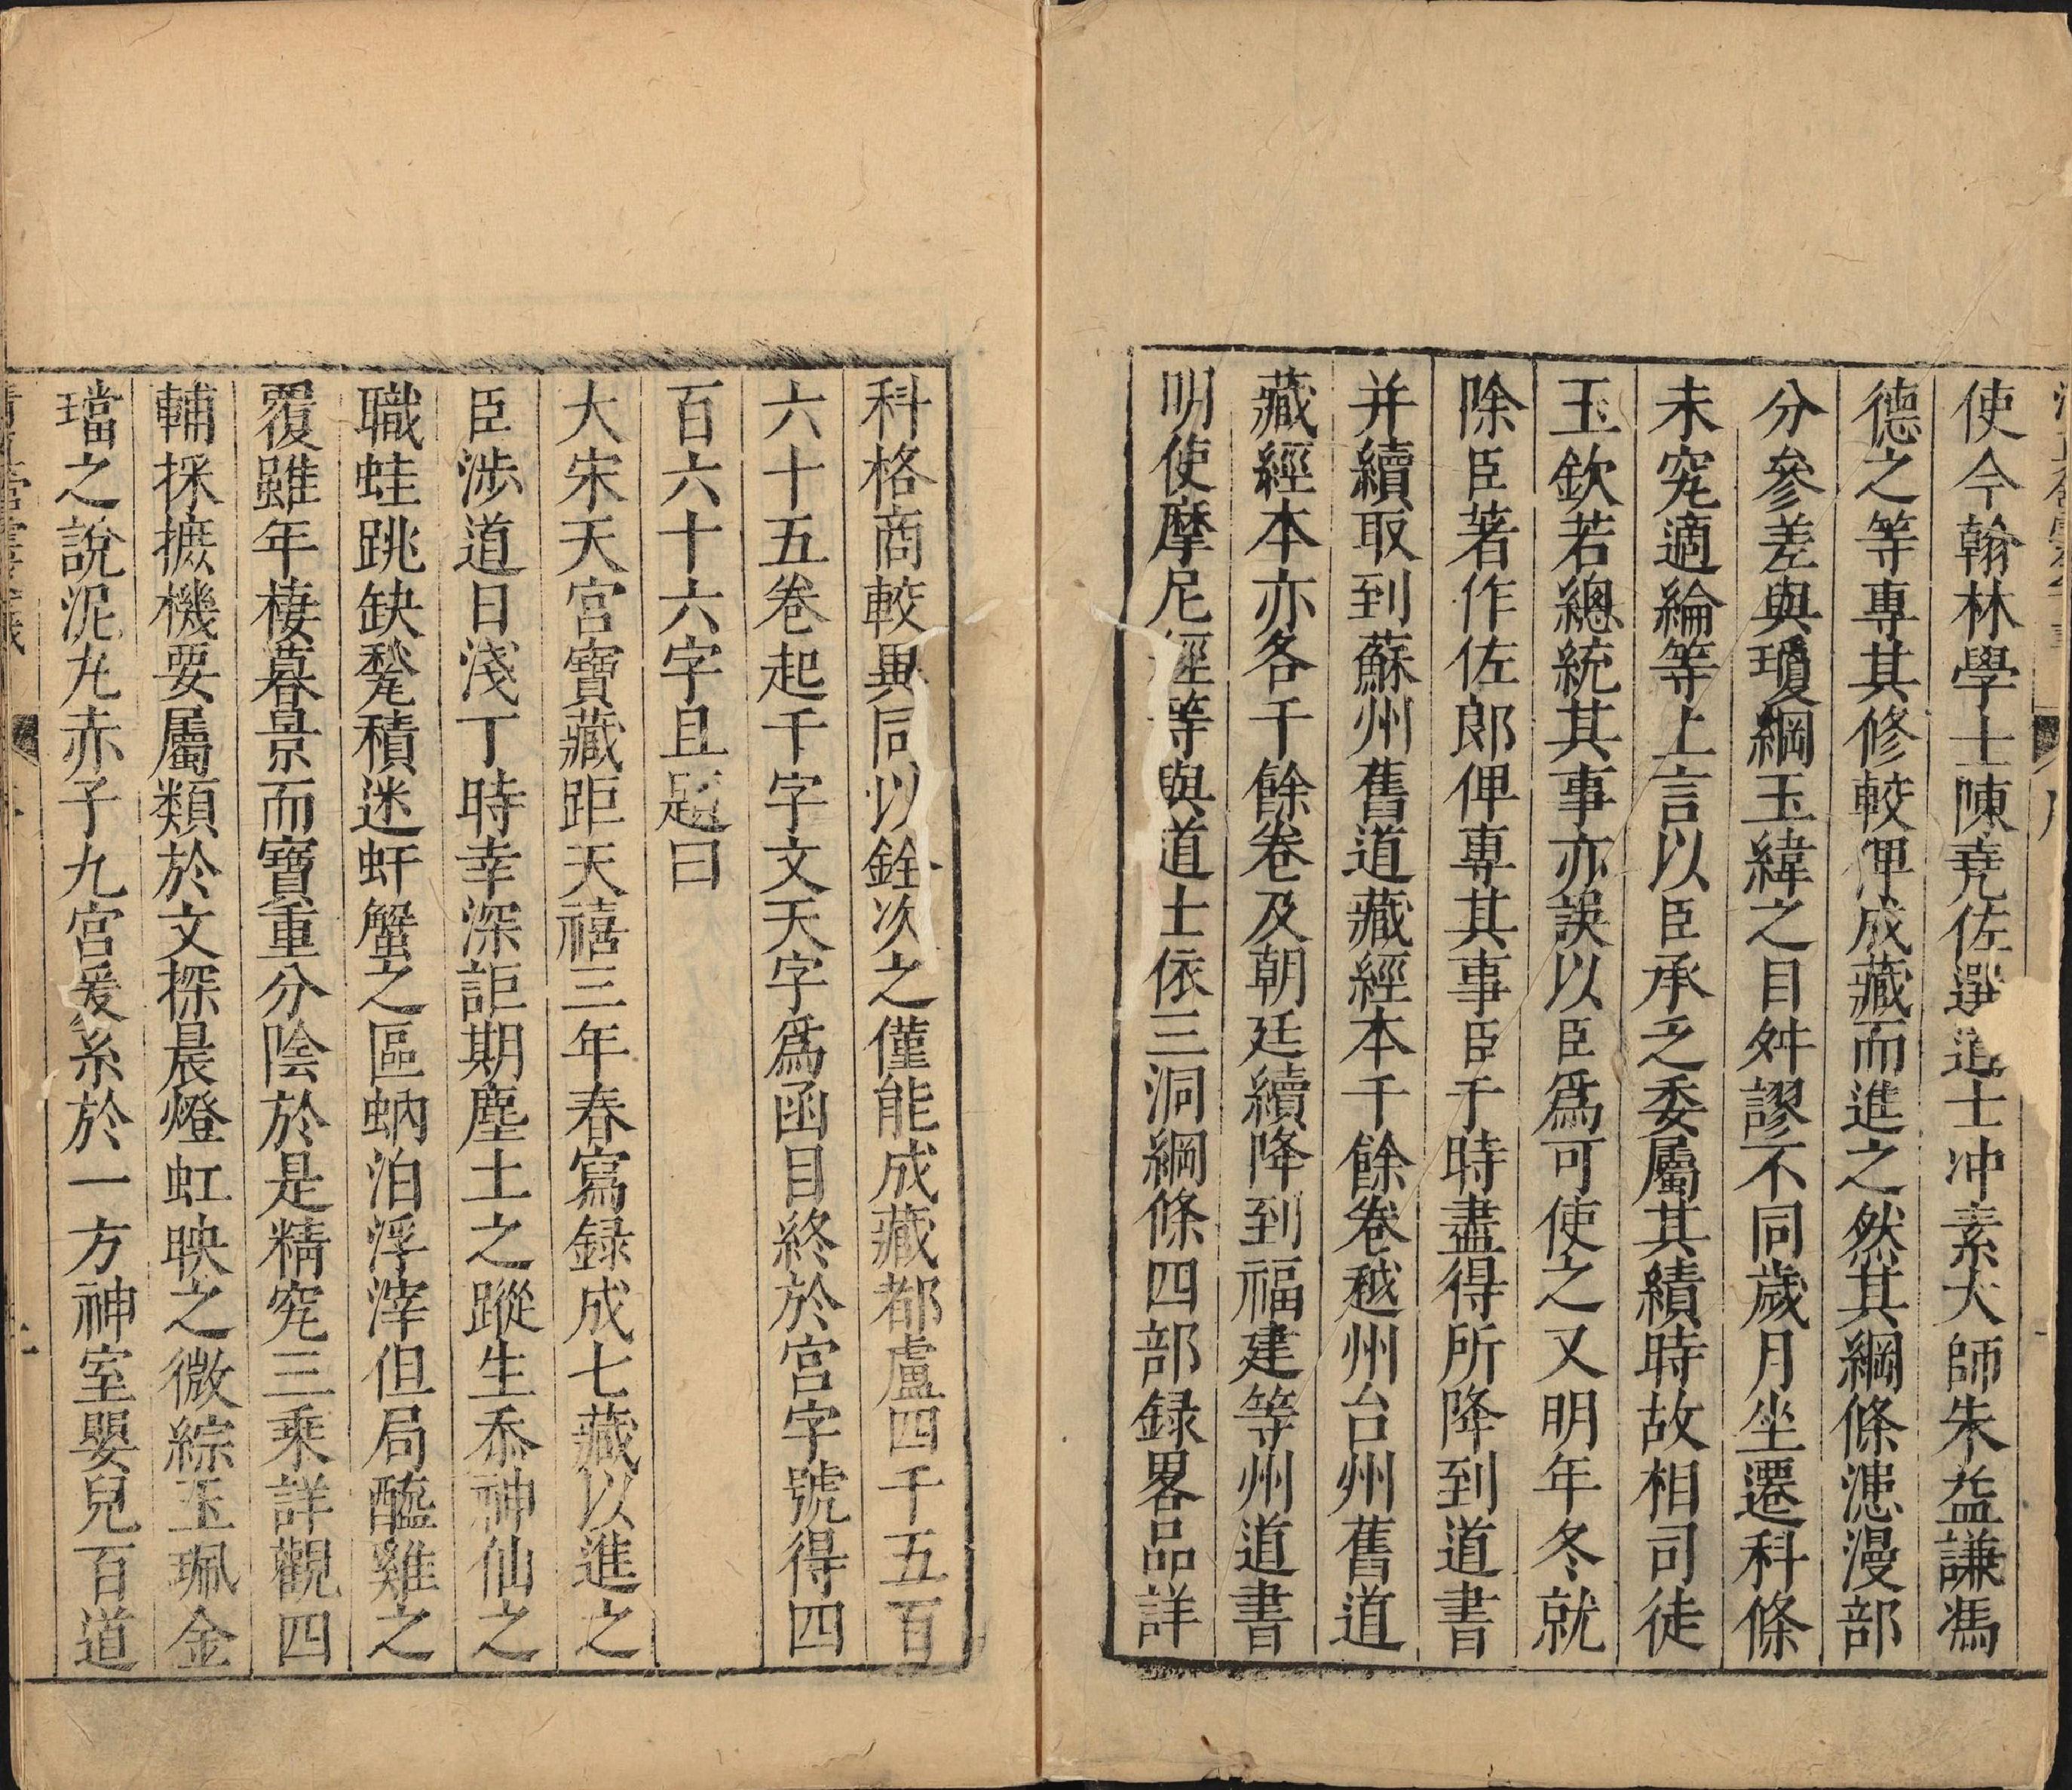 使今翰林學士陳堯佐選道士冲素大師朱益謙馮
德之等專其修較俾成藏而進之然其綱條漶漫部
分參差與瓊綱玉緯之目舛謬不同歲月坐遷科條
未究適綸等上言以臣承乏委屬其績時故相司徒
王欽若總統其事亦誤以臣爲可使之又明年冬就
除臣著作佐郎俾專其事臣于時盡得所降到道書
并續取到蘇州舊道藏經本千餘卷越州台州舊道
藏經本亦各千餘卷及朝廷續降到福建等州道書
明使摩尼經等與道士依三洞綱條四部録畧品詳
科格商較異同以銓次之僅能成藏都盧四千五百
六十五卷起千字文天字爲函目終於宮字號得四
百六十六字且題曰
大宋天宮寶藏距天禧三年春寫録成七藏以進之
臣涉道日淺丁時幸深詎期塵土之蹤生忝神仙之
職蛙跳缺甃積迷虷蟹之區蚋泊浮滓但局醯雞之
覆雖年棲暮景而寶重分陰於是精究三乘詳觀四
輔採摭機要屬類於文探晨燈虹映之微綜玉珮金
璫之說泥丸赤子九宮爰系於一方神室嬰兒百道